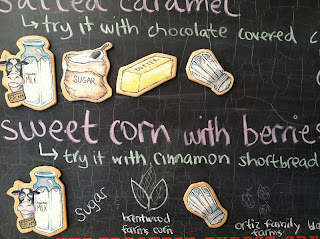 salted caramel
↳ try it with chocolate covered
MILK SUGAR BUTTER
sweet corn with berries
↳ try it with cinnamon shortbread
MILK sugar brentwood farms corn ortiz family farms